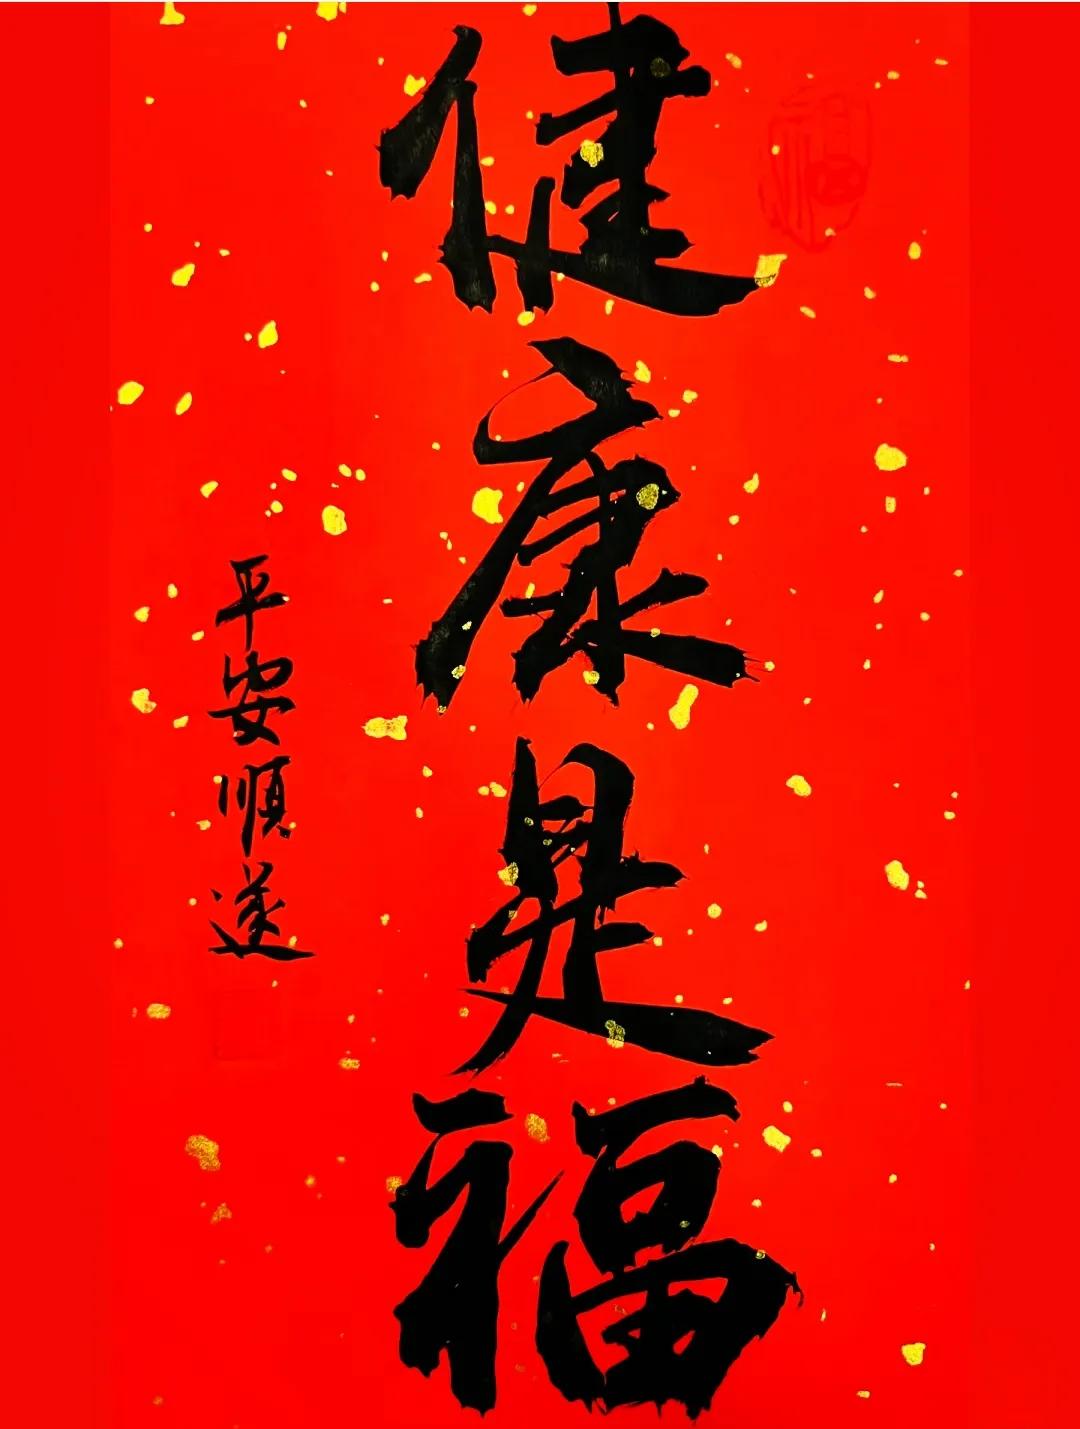 健康是福
平安順遂